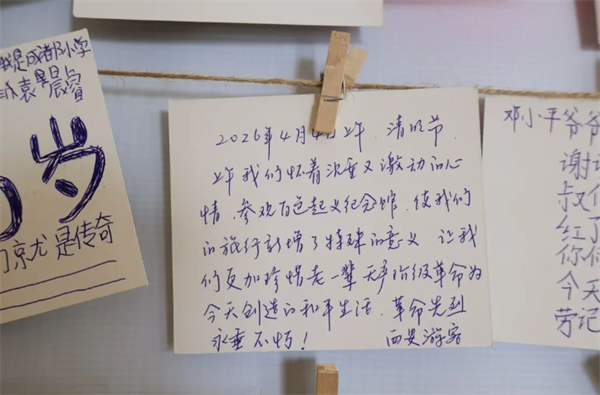 我是成都小学
袁晨睿
岁
京尤是传奇
2026年4月4日上午，清明节，
上午我们怀着沉重又激动的心
情，参观百色起义纪念馆，使我们
的旅行新增了特殊的意义，让我
们更加珍惜老一辈无产阶级革命为
今天创造的和平生活，革命先烈
永垂不朽！ 西安游客
邓小平爷爷
谢谢
叔
红了
你们
今天
劳记